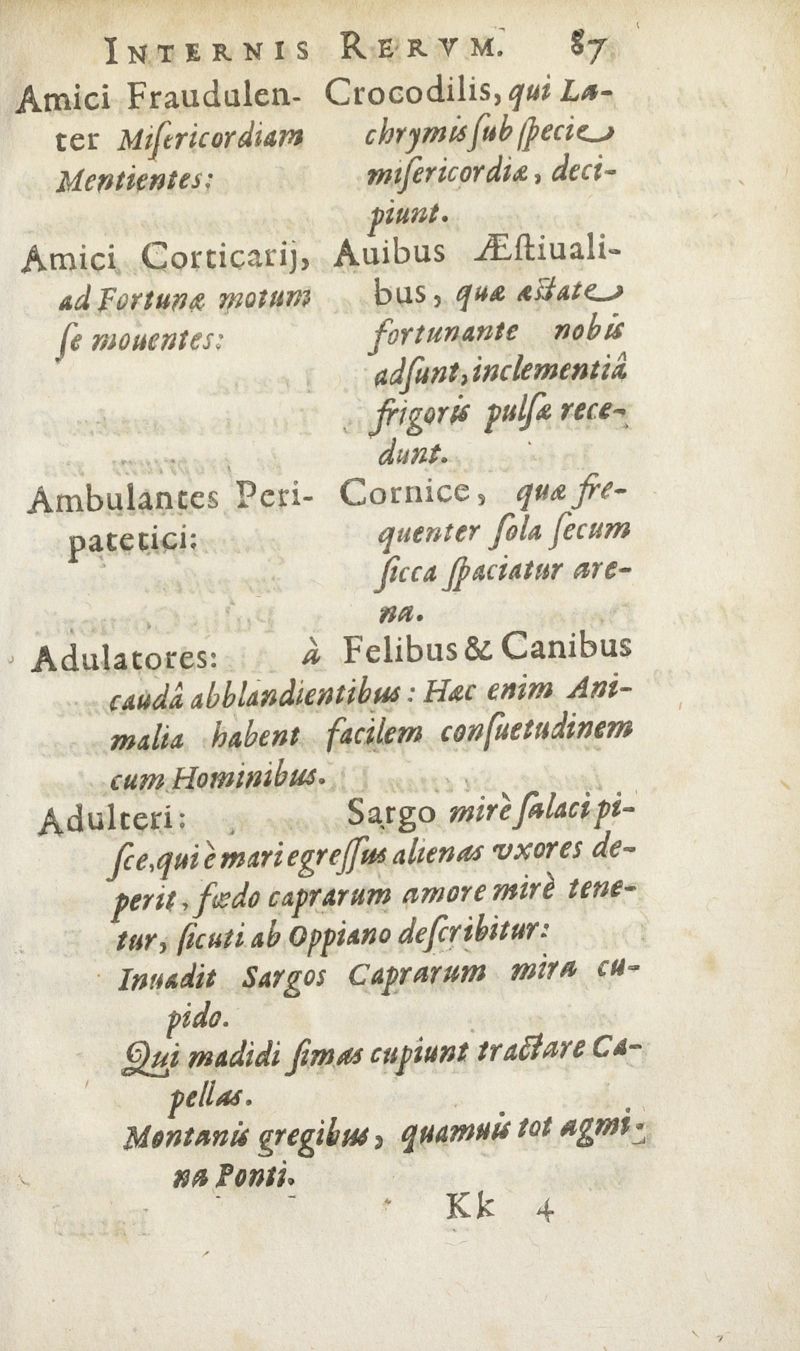 INTERNIS RERVM. 87
Amici Fraudulen- Crocodilis, qui La-
ter Misericordiam chrymis sub specie
Mentientes: misericordiæ, deci-
piunt.
Amici Corticarij, Auibus Æstiuali-
ad Fortunæ motum bus, quæ æstate
se mouentes: fortunante nobis
adsunt, inclementiâ
frigoris pulsæ rece-
dunt.
Ambulantes Peri- Cornice, quæ fre-
patetici: quenter sola secum
sicca spaciatur are-
na.
Adulatores: à Felibus & Canibus
caudâ abblandientibus: Hæc enim Ani-
malia habent facilem consuetudinem
cum Hominibus.
Adulteri: Sargo mirè salaci pi-
sce, qui è mari egressus alienas vxores de-
perit, fœdo caprarum amore mirè tene-
tur, sicuti ab Oppiano describitur:
Inuadit Sargos Caprarum mira cu-
pido.
Qui madidi simas cupiunt tractare Ca-
pellas.
Montanis gregibus, quamuis tot agmi-
na Ponti.
Kk 4